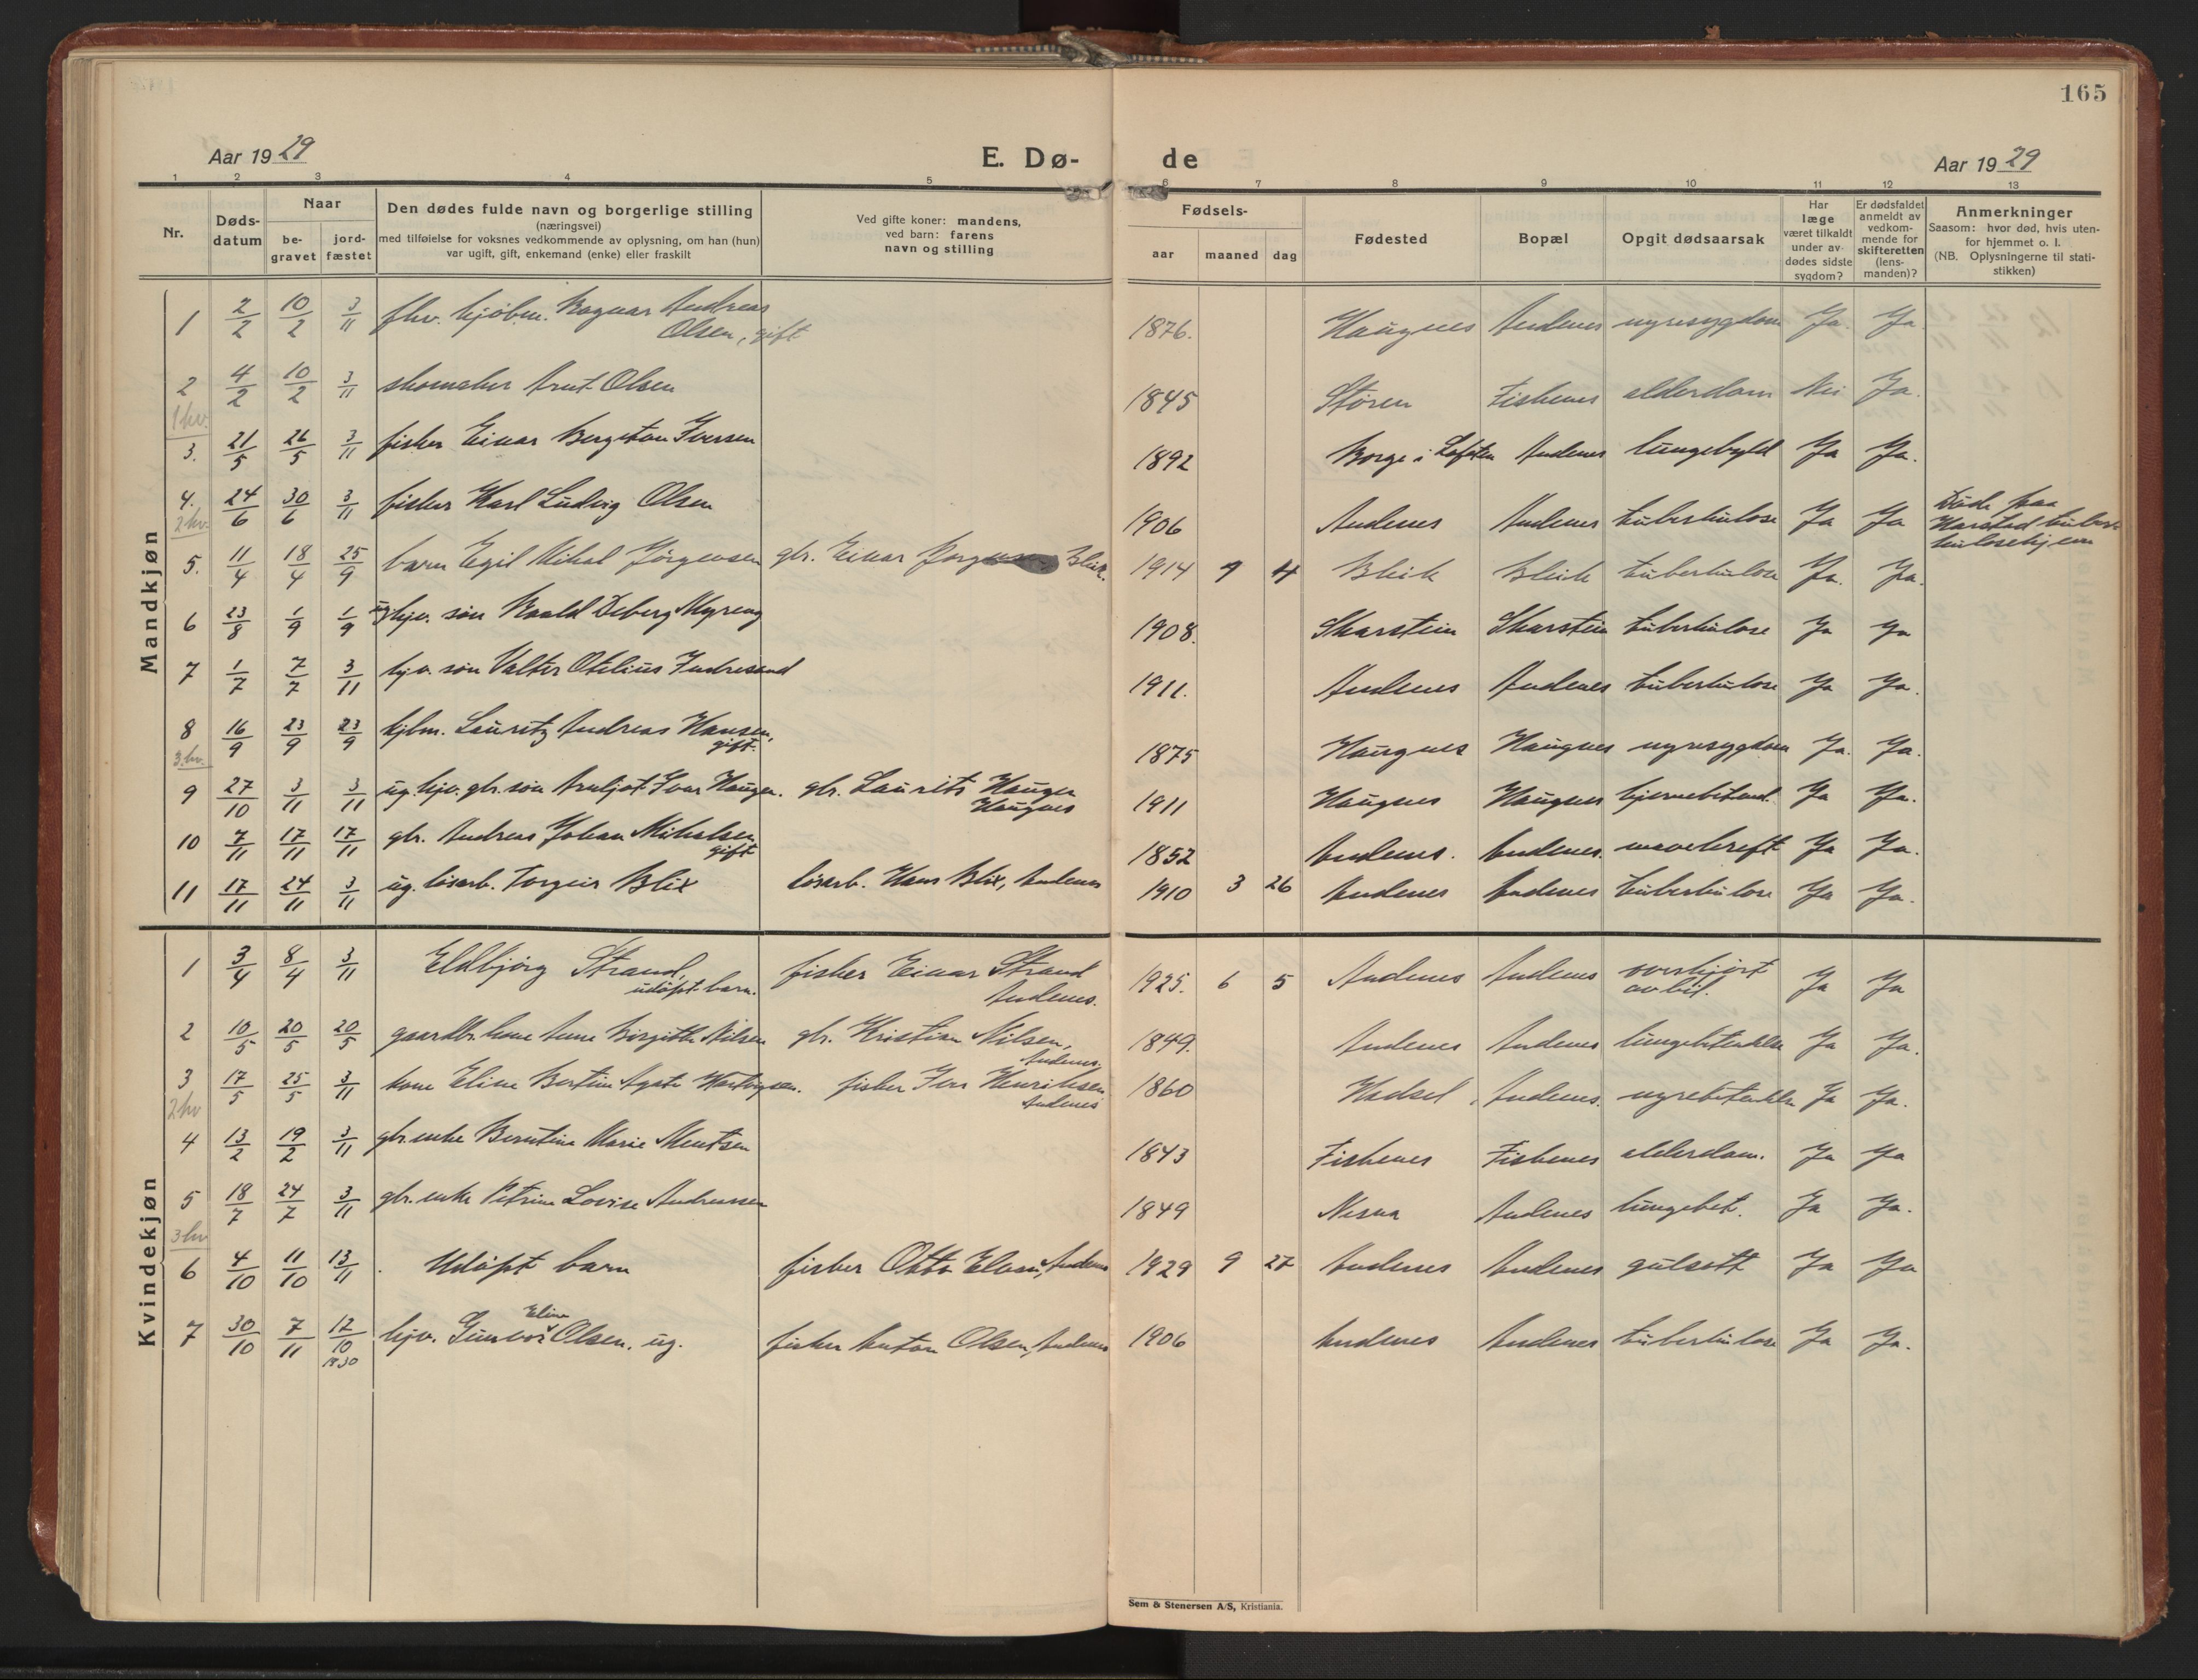 165
Aar 1929 E. Dø- de Aar 1929
1 2 3 4 5 6 7 8 9 10 11 12 13
Nr.
Døds-
datum
Naar
be-
gravet
jord-
fæstet
Den dødes fulde navn og borgerlige stilling
(næringsvei)
med tilføielse for voksnes vedkommende av oplysning, om han (hun)
var ugift, gift, enkemand (enke) eller fraskilt
Ved gifte koner: mandens,
ved barn: farens
navn og stilling
Fødsels-
aar maaned dag
Fødested
Bopæl
Opgit dødsaarsak
Har
læge
været tilkaldt
under av-
dødes sidste
sygdom?
Er dødsfaldet
anmeldt av
vedkom-
mende for
skifteretten
(lens-
manden)?
Anmerkninger
Saasom: hvor død, hvis uten-
for hjemmet o. l.
(NB. Oplysningerne til stati-
stikken)
Mandkjøn
1 2/2 10/2 3/11 fhv. kjøbm. Ragnar Andreas
Olsen, gift 1876. Haugnes Andenes nyresygdom Ja. Ja
2 4/2 10/2 3/11 skomaker Arnt Olsen 1845 Støren Fiskenes alderdom Nei Ja.
1 kv.
3. 21/5 26/5 3/11 fisker Einar Bergeton Iversen 1892 Borge i Lofoten Andenes lungebyld Ja Ja.
4. 24/6 30/6 3/11 fisker Karl Ludvig Olsen 1906 Andenes Andenes tuberkulose Ja Ja Døde paa
Harstad tuber-
kulosehjem
2 kv.
5. 11/4 18/4 25/9 barn Egil Mikal Jørgensen gbr. Einar Jørgensen Bleik. 1914 9 4 Bleik Bleik tuberkulose Ja. Ja.
6 23/8 1/9 1/9 ug. hjv. søn Roald Deberg Myreng 1908. Skarstein Skarstein tuberkulose Ja Ja
7 1/7 7/7 3/11 hjv. søn Valter Otelius Indresand 1911. Andenes Andenes tuberkulose Ja Ja.
8 16/9 23/9 23/9 kjbm. Lauritz Andreas Hansen,
gift. 1875 Haugnes Haugnes nyresygdom Ja. Ja.
3. kv.
9 27/10 3/11 3/11 ug. hjv. gbr. søn Arnljot Ivar Haugen. gbr. Laurits Haugen
Haugnes 1911 Haugnes Haugnes hjernebetend. Ja Ja.
10 7/11 17/11 17/11 gbr. Andreas Johan Mikalsen
gift 1852 Andenes. Andenes. mavekreft Ja Ja.
11 17/11 24/11 3/11 ug. løsarb. Torgeir Blix løsarb. Hans Blix, Andenes 1910 3 26 Andenes Andenes tuberkulose Ja Ja.
Kvindekjøn
1 3/4 8/4 3/11 Eldbjørg Strand,
udøpt barn. fisker Einar Strand
Andenes. 1925. 6 5 Andenes Andenes overkjørt
av bil. Ja Ja
2 10/5 20/5 20/5 gaardbr. kone Anne Birgitte Nilsen gbr. Kristian Nilsen,
Andenes. 1849. Andenes Andenes lungebetendelse Ja Ja.
3 17/5 25/5 3/11 kone Eline Bertine Agate fisker Iver Henriksen
Andenes 1860 Hadsel Andenes. nyrebetendelse Ja Ja.
2 kv
4 13/2 19/2 3/11 gbr. enke Berntine Marie Mentsen 1843 Fiskenes Fiskenes alderdom. Ja Ja
5 18/7 24/7 3/11 gbr. enke Petrine Lovise Andreassen 1849 Nesna Andenes lungebet. Ja Ja.
3 kv
6 4/10 11/10 13/11 . Udøpt barn fisker Otto Andenes 1929 9 27 Andenes Andenes gulsott Ja Ja
7 30/10 7/11 12/10 1930 hjv. Gunvor Eline Olsen. ug. fisker Anton Olsen, Andenes 1906 Andenes Andenes tuberkulose Ja Ja.
Sem & Stenersen A/S, Kristiania.